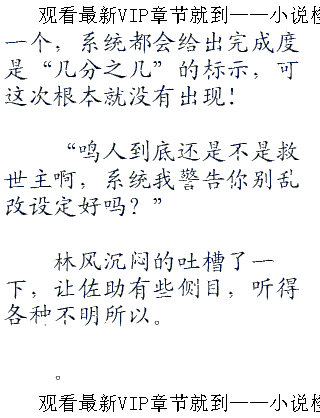 观看最新VIP章节就到——小说
一个，系统都会给出完成度
是“几分之几”的标示，可
这次根本就没有出现！
“鸣人到底还是不是救
世主啊，系统我警告你别乱
改设定好吗？”
林风沉闷的吐槽了一
下，让佐助有些侧目，听得
各种不明所以。
。
观看最新VIP章节就到——小说